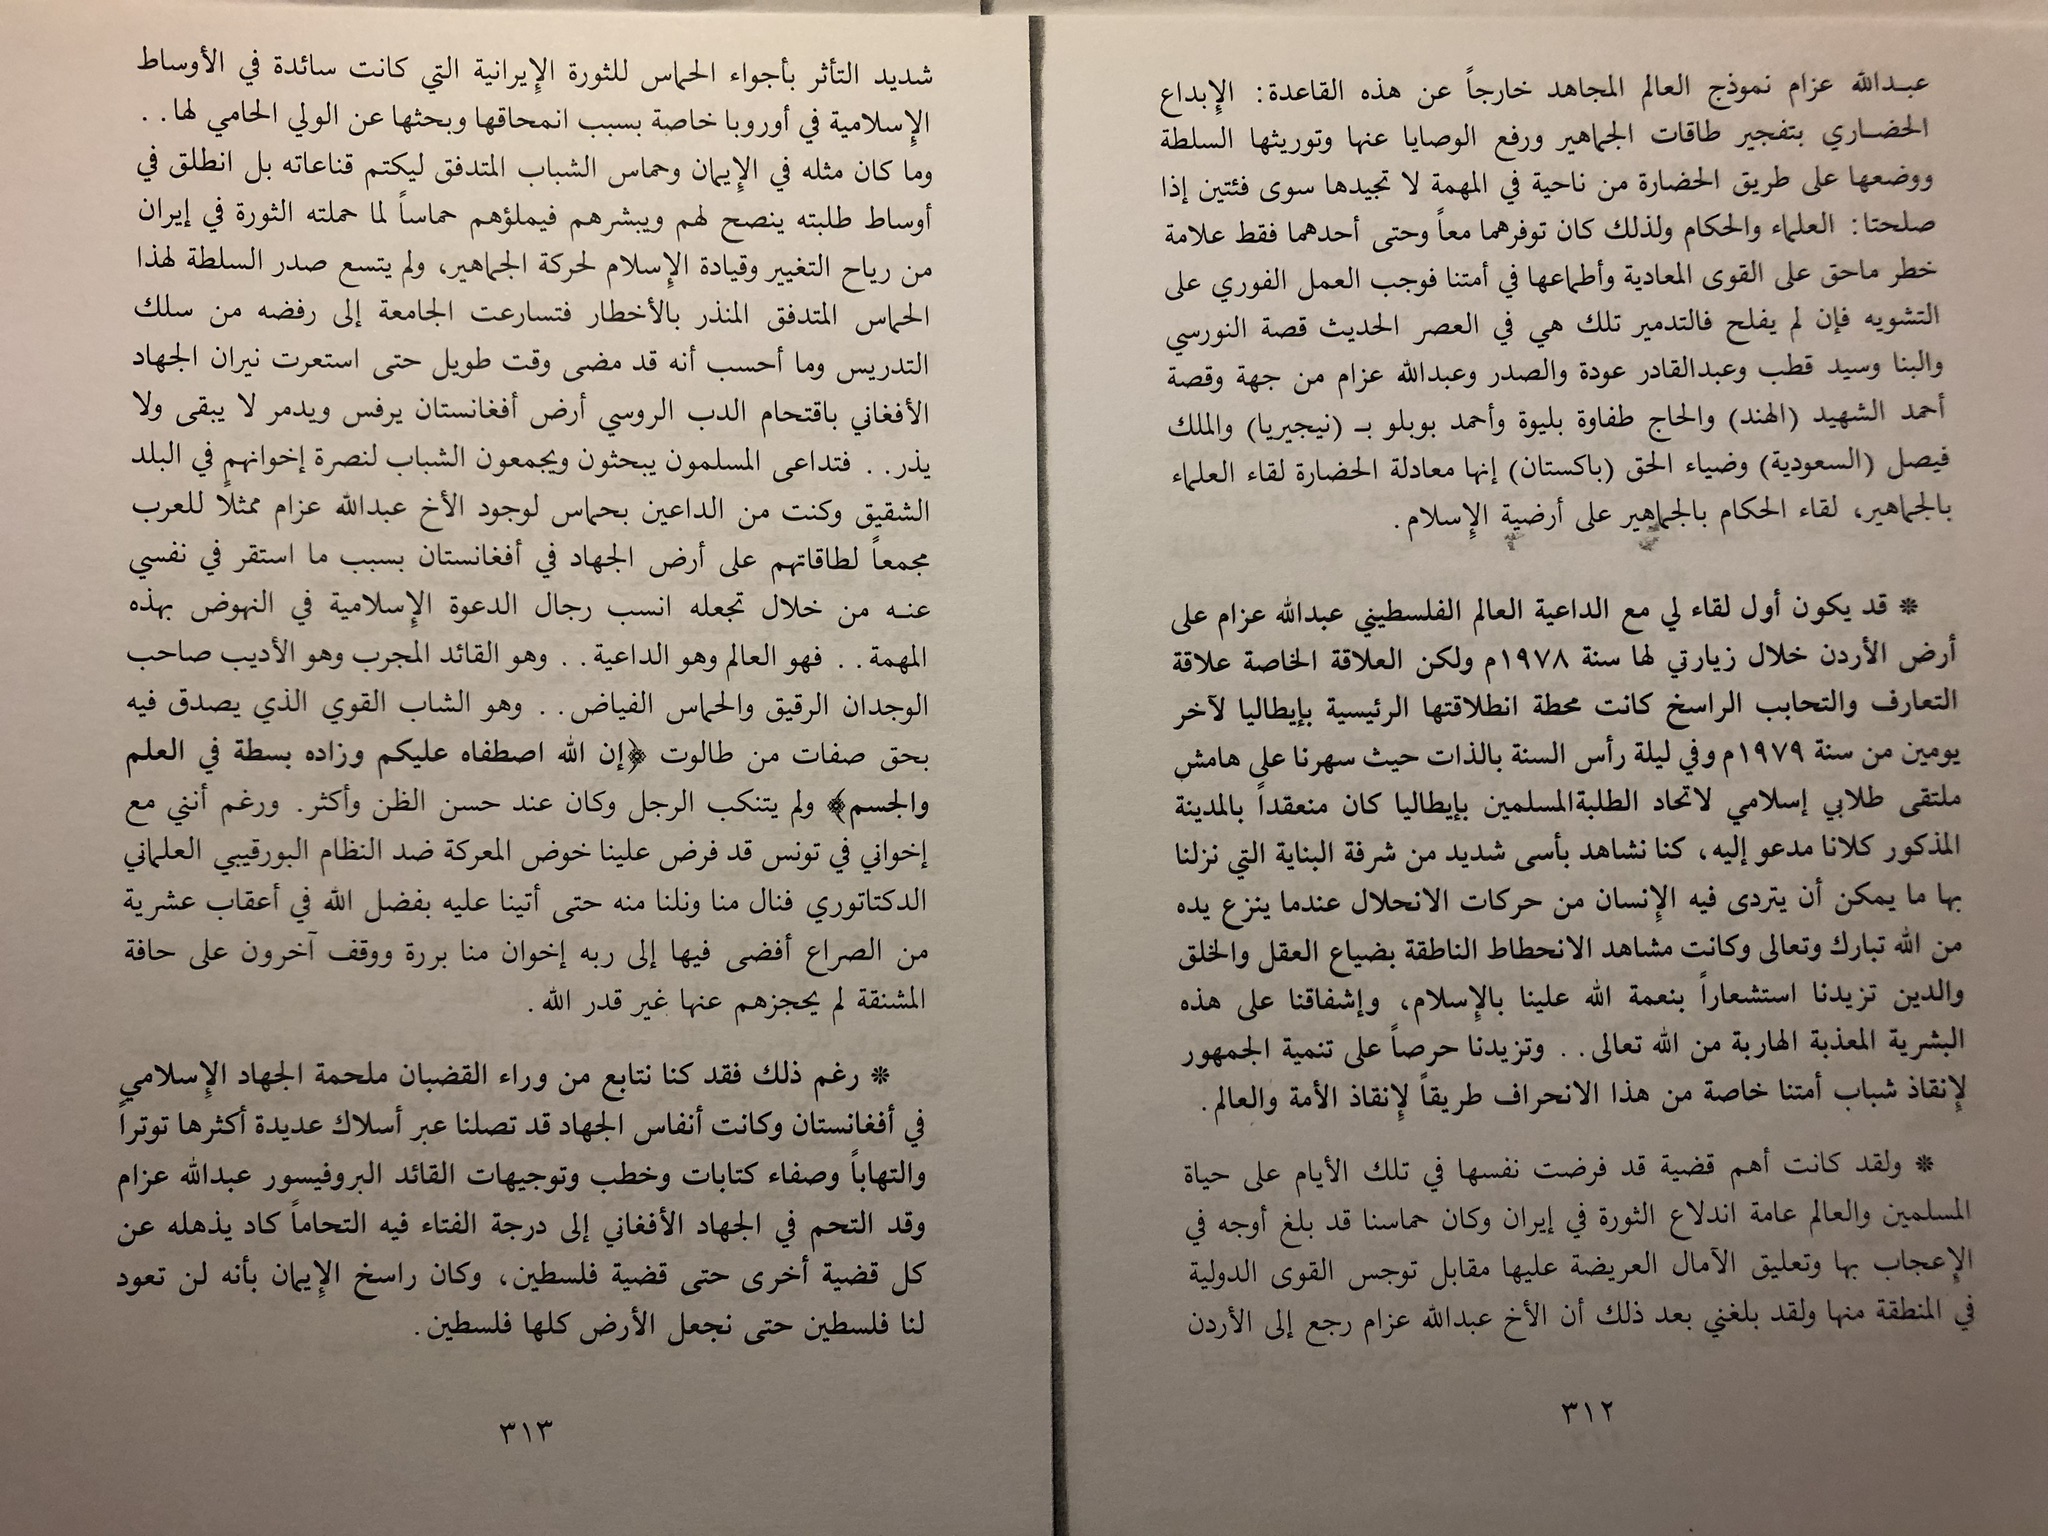 عبدالله عزام نموذج العالم المجاهد خارجاً عن هذه القاعدة: الإِبداع
الحضاري بتفجير طاقات الجماهير ورفع الوصايا عنها وتوريثها السلطة
ووضعها على طريق الحضارة من ناحية في المهمة لا تجيدها سوى فئتين إذا
صلحتا: العلماء والحكام ولذلك كان توفرهما معاً وحتى أحدهما فقط علامة
خطر ماحق على القوى المعادية وأطماعها في أمتنا فوجب العمل الفوري على
التشويه فإن لم يفلح فالتدمير تلك هي في العصر الحديث قصة النورسي
والبنا وسيد قطب وعبدالقادر عودة والصدر وعبدالله عزام من جهة وقصة
أحمد الشهيد (الهند) والحاج طفاوة بليوة وأحمد بوبلو بـ (نيجيريا) والملك
فيصل (السعودية) وضياء الحق (باكستان) إنها معادلة الحضارة لقاء العلماء
بالجماهير، لقاء الحكام بالجماهير على أرضية الإِسلام.
❊ قد يكون أول لقاء لي مع الداعية العالم الفلسطيني عبدالله عزام على
أرض الأردن خلال زيارتي لها سنة ١٩٧٨م ولكن العلاقة الخاصة علاقة
التعارف والتحابب الراسخ كانت محطة انطلاقتها الرئيسية بإيطاليا لآخر
يومين من سنة ١٩٧٩م وفي ليلة رأس السنة بالذات حيث سهرنا على هامش
ملتقى طلابي إسلامي لاتحاد الطلبةالمسلمين بإيطاليا كان منعقداً بالمدينة
المذكور كلانا مدعو إليه، كنا نشاهد بأسى شديد من شرفة البناية التي نزلنا
بها ما يمكن أن يتردى فيه الإِنسان من حركات الانحلال عندما ينزع يده
من الله تبارك وتعالى وكانت مشاهد الانحطاط الناطقة بضياع العقل والخلق
والدين تزيدنا استشعاراً بنعمة الله علينا بالإِسلام، وإشفاقنا على هذه
البشرية المعذبة الهاربة من الله تعالى.. وتزيدنا حرصاً على تنمية الجمهور
لإنقاذ شباب أمتنا خاصة من هذا الانحراف طريقاً لإنقاذ الأمة والعالم.
❊ ولقد كانت أهم قضية قد فرضت نفسها في تلك الأيام على حياة
المسلمين والعالم عامة اندلاع الثورة في إيران وكان حماسنا قد بلغ أوجه في
الإِعجاب بها وتعليق الآمال العريضة عليها مقابل توجس القوى الدولية
في المنطقة منها ولقد بلغني بعد ذلك أن الأخ عبدالله عزام رجع إلى الأردن
٣١٢
شديد التأثر بأجواء الحماس للثورة الإِيرانية التي كانت سائدة في الأوساط
الإِسلامية في أوروبا خاصة بسبب انمحاقها وبحثها عن الولي الحامي لها..
وما كان مثله في الإِيمان وحماس الشباب المتدفق ليكتم قناعاته بل انطلق في
أوساط طلبته ينصح لهم ويبشرهم فيملؤهم حماساً لما حملته الثورة في إيران
من رياح التغيير وقيادة الإِسلام لحركة الجماهير، ولم يتسع صدر السلطة لهذا
الحماس المتدفق المنذر بالأخطار فتسارعت الجامعة إلى رفضه من سلك
التدريس وما أحسب أنه قد مضى وقت طويل حتى استعرت نيران الجهاد
الأفغاني باقتحام الدب الروسي أرض أفغانستان يرفس ويدمر لا يبقى ولا
يذر.. فتداعى المسلمون يبحثون ويجمعون الشباب لنصرة إخوانهم في البلد
الشقيق وكنت من الداعين بحماس لوجود الأخ عبدالله عزام ممثلاً للعرب
مجمعاً لطاقاتهم على أرض الجهاد في أفغانستان بسبب ما استقر في نفسي
عنه من خلال تجعله انسب رجال الدعوة الإِسلامية في النهوض بهذه
المهمة.. فهو العالم وهو الداعية.. وهو القائد المجرب وهو الأديب صاحب
الوجدان الرقيق والحماس الفياض.. وهو الشاب القوي الذي يصدق فيه
بحق صفات من طالوت ﴿إن الله اصطفاه عليكم وزاده بسطة في العلم
والجسم﴾ ولم يتنكب الرجل وكان عند حسن الظن وأكثر. ورغم أنني مع
إخواني في تونس قد فرض علينا خوض المعركة ضد النظام البورقيبي العلماني
الدكتاتوري فنال منا ونلنا منه حتى أتينا عليه بفضل الله في أعقاب عشرية
من الصراع أفضى فيها إلى ربه إخوان منا بررة ووقف آخرون على حافة
المشنقة لم يحجزهم عنها غير قدر الله.
❊ رغم ذلك فقد كنا نتابع من وراء القضبان ملحمة الجهاد الإِسلامي
في أفغانستان وكانت أنفاس الجهاد قد تصلنا عبر أسلاك عديدة أكثرها توتراً
والتهاباً وصفاء كتابات وخطب وتوجيهات القائد البروفيسور عبدالله عزام
وقد التحم في الجهاد الأفغاني إلى درجة الفتاء فيه التحاماً كاد يذهله عن
كل قضية أخرى حتى قضية فلسطين، وكان راسخ الإِيمان بأنه لن تعود
لنا فلسطين حتى نجعل الأرض كلها فلسطين.
٣١٣